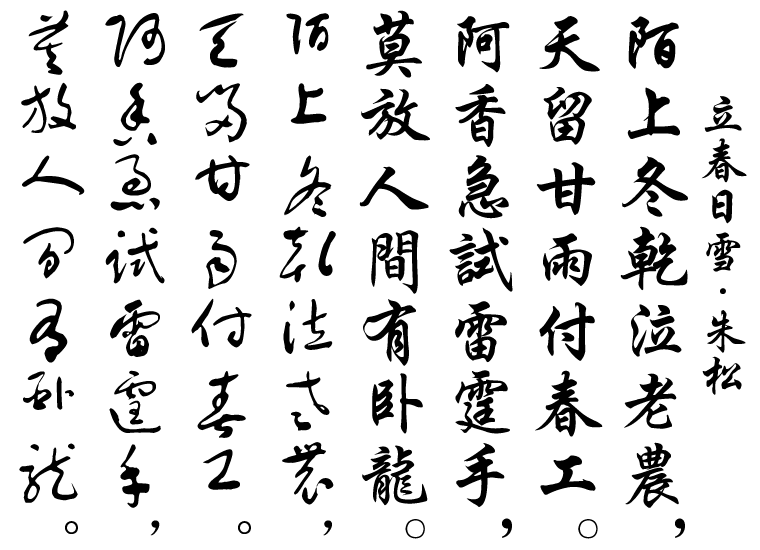 立春日雪·朱松
陌上冬乾泣老農，
天留甘雨付春工。
阿香急試雷霆手，
莫放人間有卧龍。
陌上冬乾泣老農，
天留甘雨付春工。
阿香急試雷霆手，
莫放人間有卧龍。